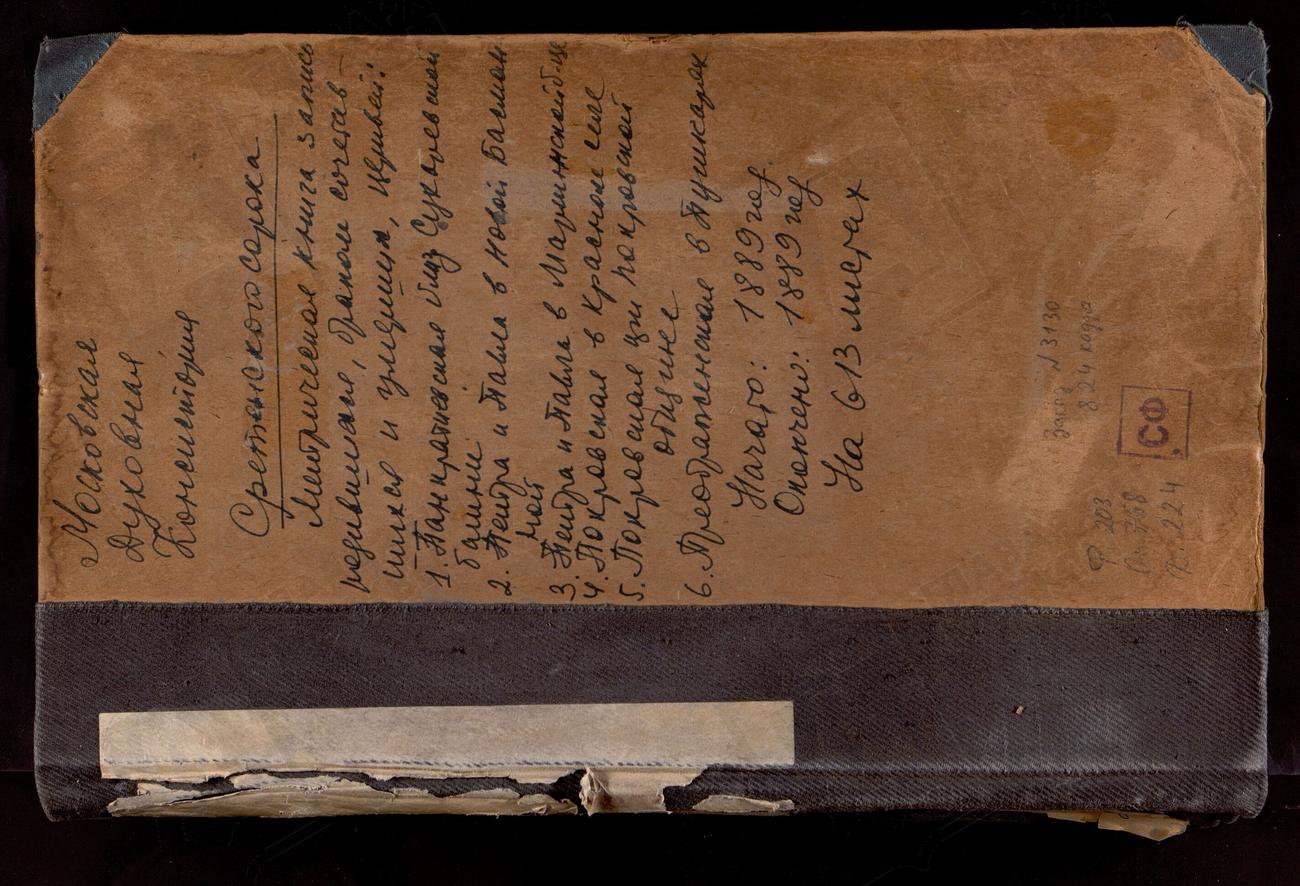 Московская
Духовная
Консистория
Сретенского сорока
Метрическая книга запись
родившихся, браком сочетав-
шихся и умерших, церквей:
1. Панкратьевская близ Сухаревской
башни
2. Петра и Павла в новой Басман
ной
3. Петра и Павла в Мариинской б-це
4. Покровская в красном селе
5. Покровская при покровской
общине
6. Преображенская в Пушкарях
Начато: 1889 год.
Окончено: 1889 год
На 613 листах
Заезд N 3130
824 кадра
СФ
Ф 203
Оп 768
д. 224